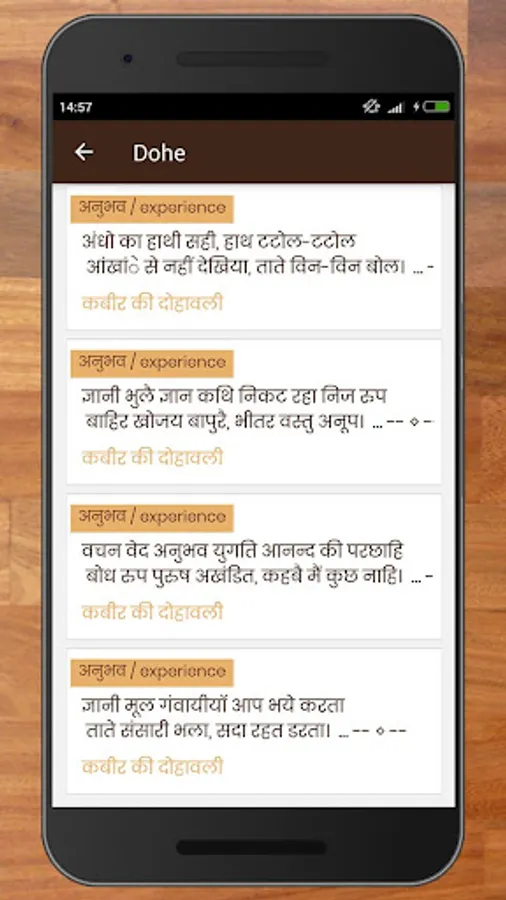 14:57
Dohe
अनुभव / experience
अंधो का हाथी सही, हाथ टटोल-टटोल
आंखांे से नहीं देखिया, ताते विन-विन बोल। ... -
कबीर की दोहावली
अनुभव / experience
ज्ञानी भुलै ज्ञान कथि निकट रहा निज रुप
बाहिर खोजय बापुरै, भीतर वस्तु अनूप। ... -- ⋄ -
कबीर की दोहावली
अनुभव / experience
वचन वेद अनुभव युगति आनन्द की परछाहि
बोध रुप पुरुष अखंडित, कहबै मैं कुछ नाहि। ... -
कबीर की दोहावली
अनुभव / experience
ज्ञानी मूल गंवायीयॉ आप भये करता
ताते संसारी भला, सदा रहत डरता। ... -- ⋄ --
कबीर की दोहावली